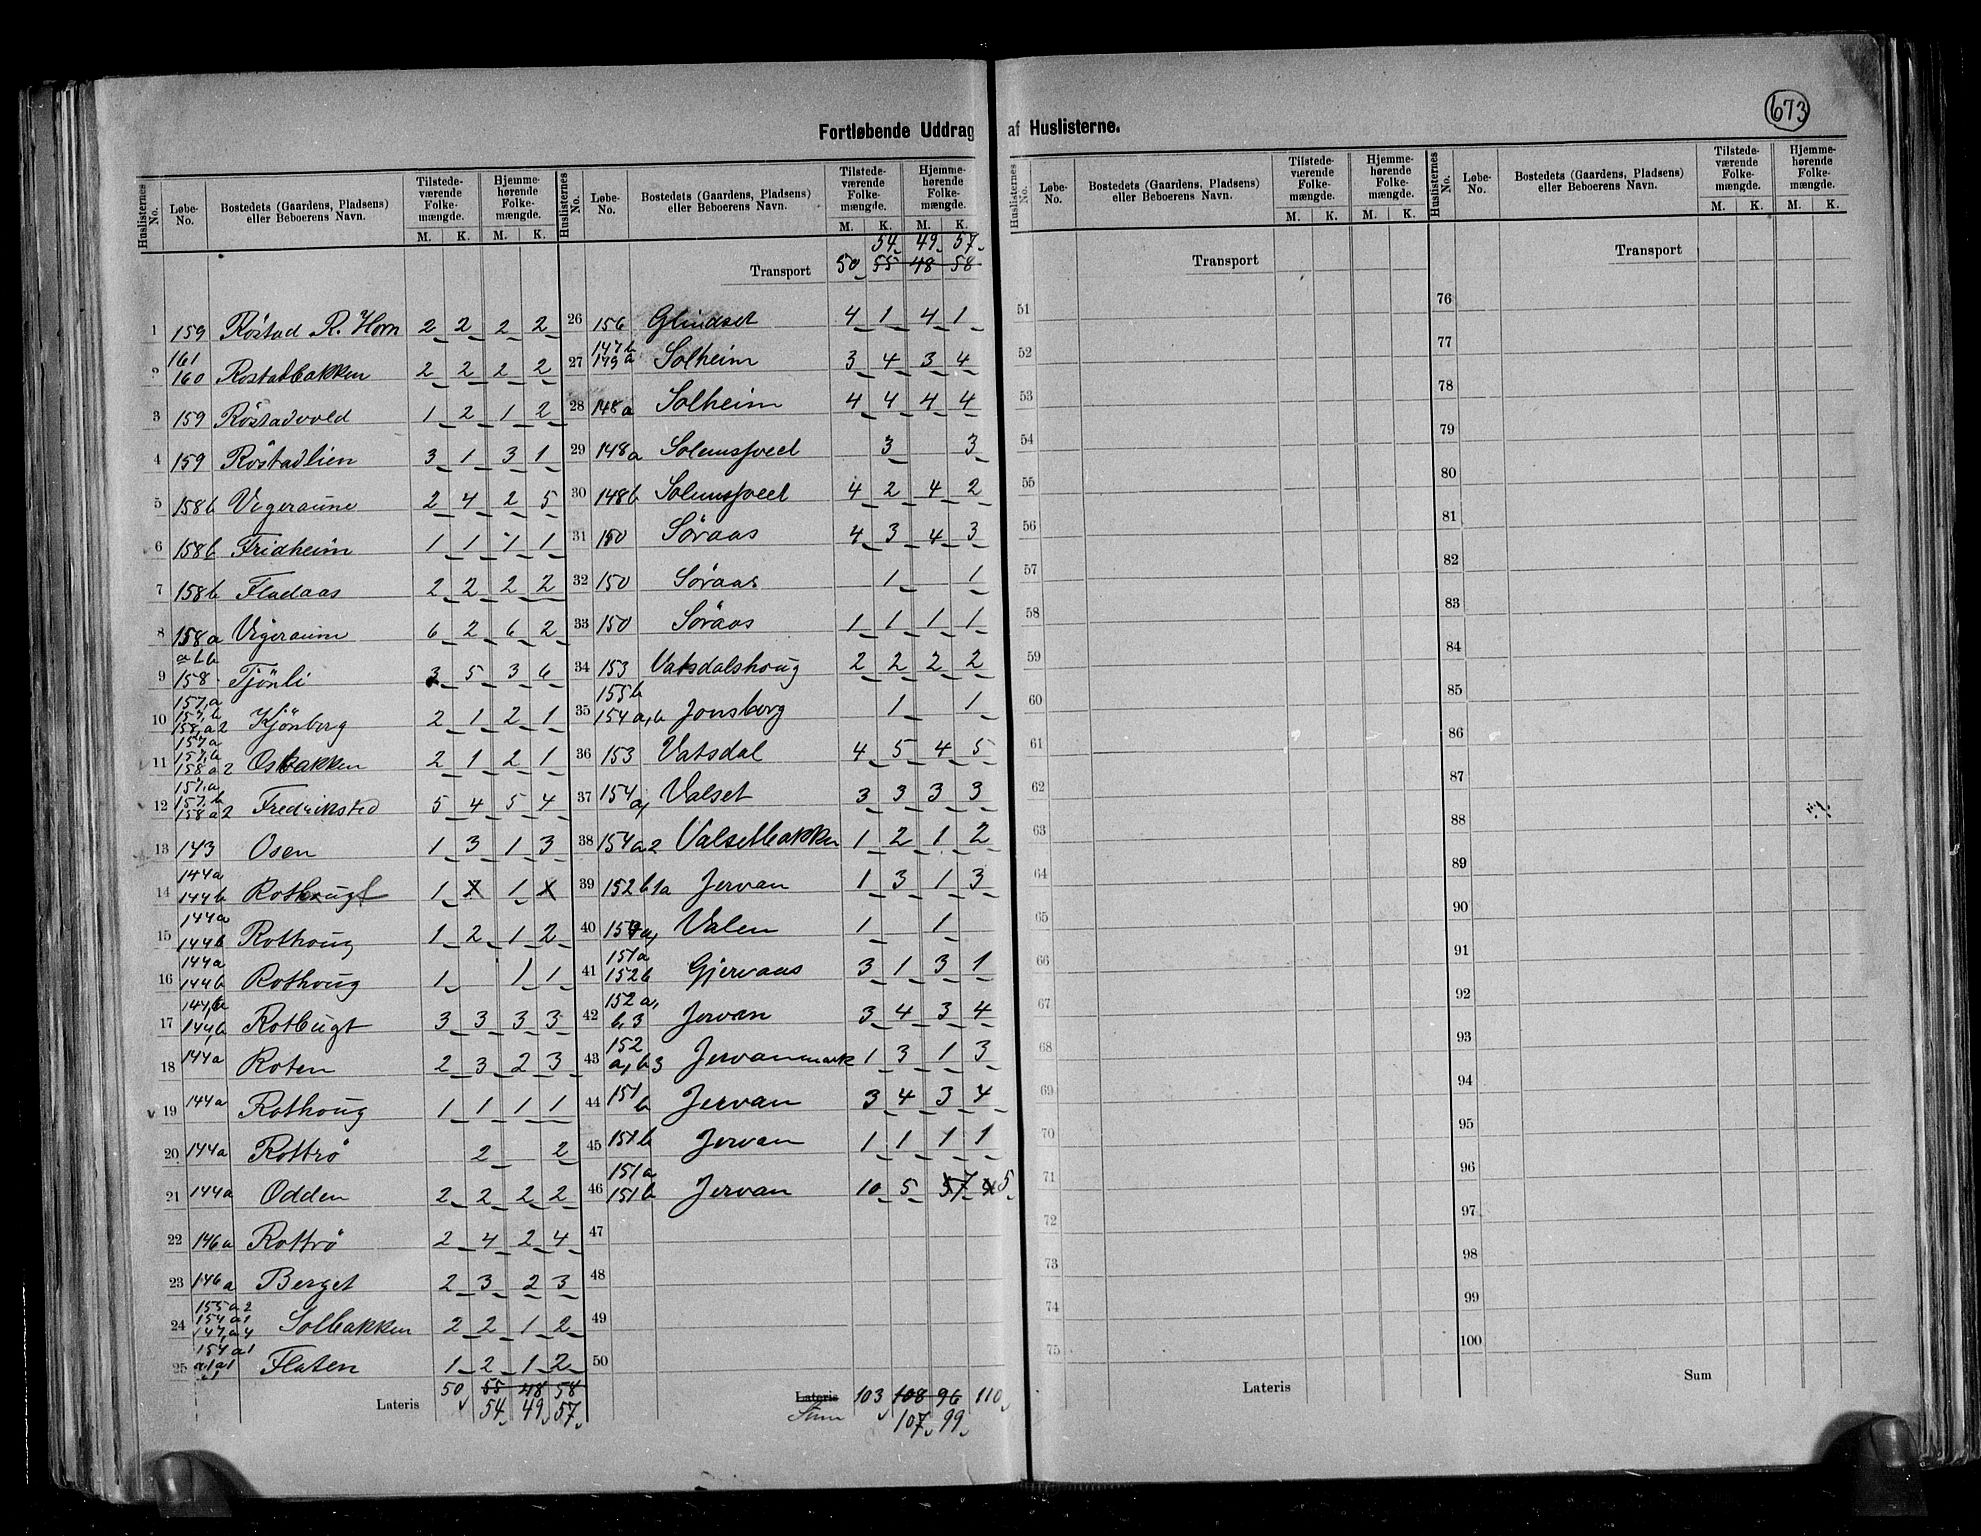 673
Fortløbende Uddrag af Huslisterne.
Huslisternes No. Løbe-No. Bostedets (Gaardens, Pladsens) eller Beboerens Navn. Tilstede-værende Folke-mængde. Hjemme-hørende Folke-mængde. M. K. M. K.
1 159 Röstad R. Horn 2 2 2 2
2 161 160 Röstadbakken 2 2 2 2
3 159 Röstadvold 1 2 1 2
4 159 Röstadlien 3 1 3 1
5 158b Vigeraune 2 4 2 5
6 158b Fridheim 1 1 1 1
7 158b Fladaas 2 2 2 2
8 158a Vigeraune 6 2 6 2
9 158 Tjönli 3 5 3 6
10 157,a 157,b 158,a2 Kjönberg 2 1 2 1
11 157a 157,b 158a2 Osbakken 2 1 2 1
12 157,a 157,b 158a2 Fredriksted 5 4 5 4
13 143 Osen 1 3 1 3
14 144a 144b 1 1
15 144a 144b Rothoug 1 2 1 2
16 144a 144b Rothoug 1 1 1
17 144b Rotbugt 3 3 3 3
18 144a Roten 2 3 2 3
19 144a Rothoug 1 1 1 1
20 144a Rottrö 2 2
21 144a Odden 2 2 2 2
22 146a Rottrö 2 4 2 4
23 146a Berget 2 3 2 3
24 155a2 154a1 147,a4 Solbakken 2 2 1 2
25 154a1 Flaten 1 2 1 2
Lateris 50 55 48 58
54 49 57
Huslisternes No. Løbe-No. Bostedets (Gaardens, Pladsens) eller Beboerens Navn. Tilstede-værende Folke-mængde. Hjemme-hørende Folke-mængde. M. K. M. K.
54 49 57
Transport 50 55 48 58
26 156 Glindset 4 1 4 1
27 147b 149a Solheim 3 4 3 4
28 148a Solheim 4 4 4 4
29 148a 3 3
30 148b 4 2 4 2
31 150 Søraas 4 3 4 3
32 150 Søraas 1 1
33 150 Søraas 1 1 1 1
34 153 Vatsdalshoug 2 2 2 2
35 155b 154a,b Jonsberg 1 1
36 153 Vatsdal 4 5 4 5
37 154a, Valset 3 3 3 3
38 154a2 Valsetbakken 1 2 1 2
39 152b1a Jervan 1 3 1 3
40 Valen 1 1
41 151a 152b Gjervaas 3 1 3 1
42 152a, b,3 Jervan 3 4 3 4
43 152 a,b3 Jervanmark 1 3 1 3
44 151b Jervan 3 4 3 4
45 151b Jervan 1 1 1 1
46 151a 151b Jervan 10 5 7 5
47
48
49
50
Lateris 103 108 96 110
Sum 107 99
Huslisternes No. Løbe-No. Bostedets (Gaardens, Pladsens) eller Beboerens Navn. Tilstede-værende Folke-mængde. Hjemme-hørende Folke-mængde. M. K. M. K.
Transport
51
52
53
54
55
56
57
58
59
60
61
62
63
64
65
66
67
68
69
70
71
72
73
74
75
Lateris
Huslisternes No. Løbe-No. Bostedets (Gaardens, Pladsens) eller Beboerens Navn. Tilstede-værende Folke-mængde. Hjemme-hørende Folke-mængde. M. K. M. K.
Transport
76
77
78
79
80
81
82
83
84
85
86
87
88
89
90
91
92
93
94
95
96
97
98
99
100
Sum